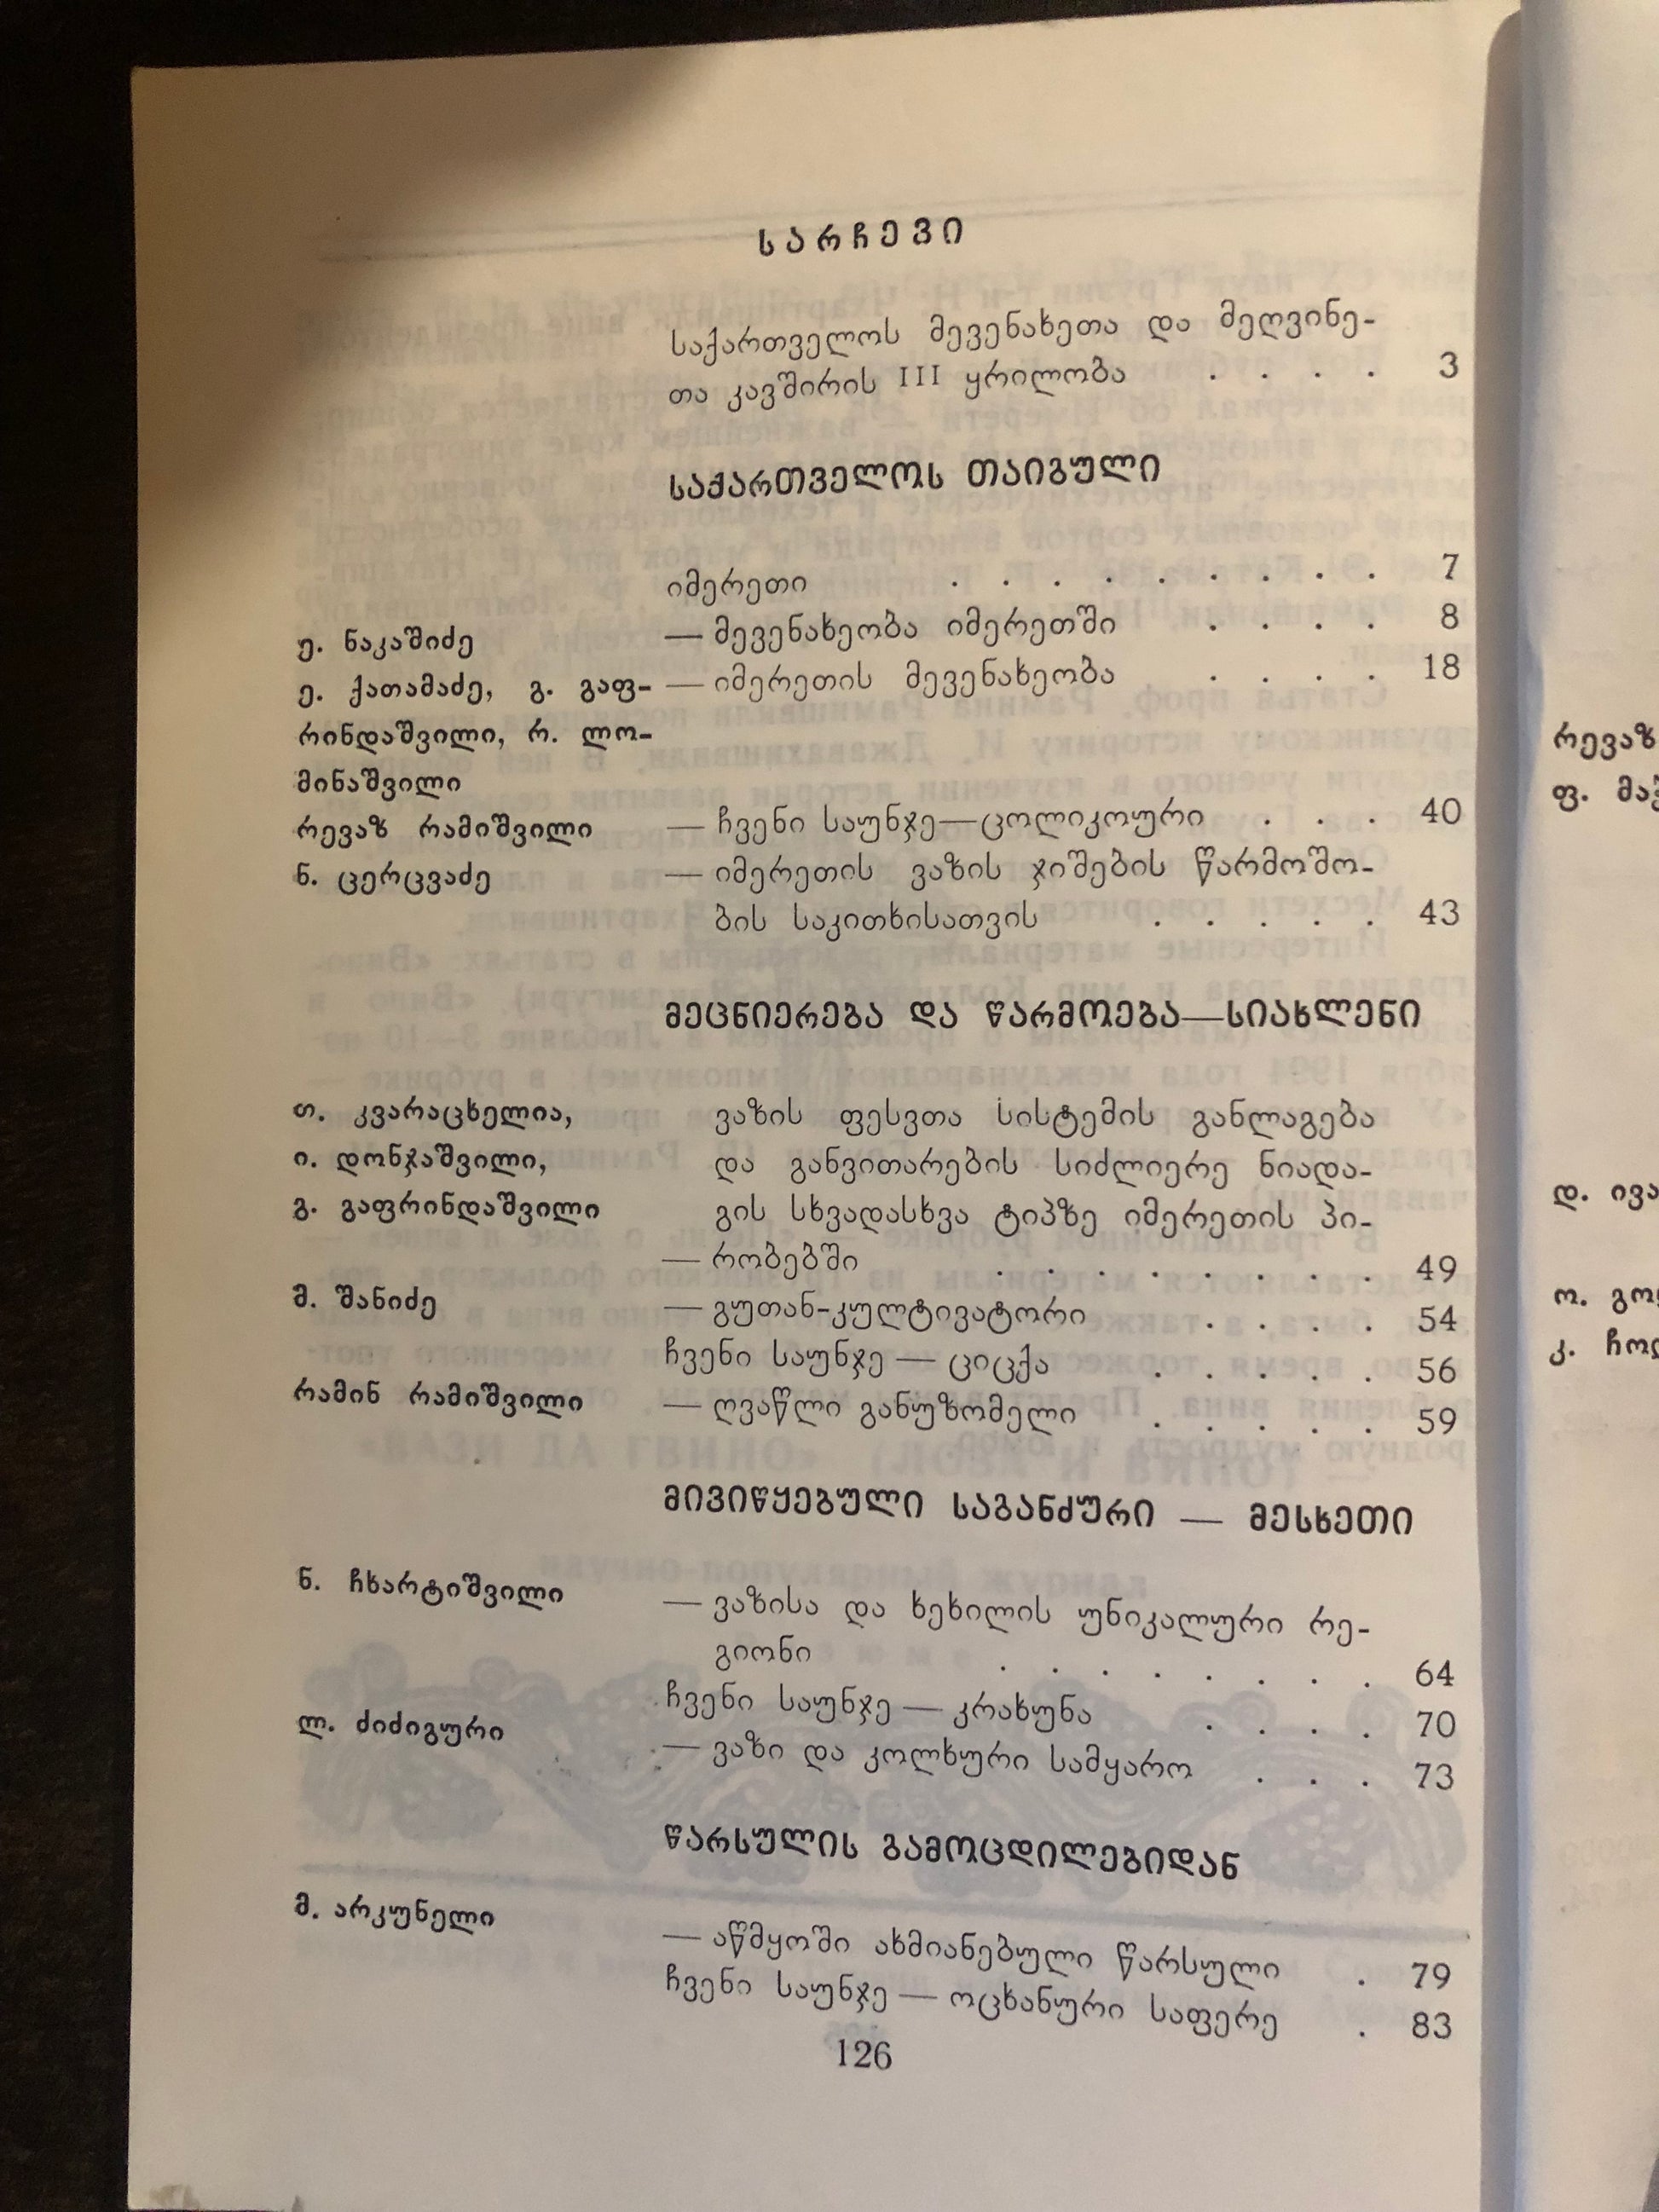 სარჩევი
საქართველოს მევენახეთა და მეღვინე-
თა კავშირის III ყრილობა . . . . 3
საქართველოს თაიგული
იმერეთი . . . . . . . . . 7
ე. ნაკაშიძე — მევენახეობა იმერეთში . . . . 8
ე. ქათამაძე, გ. გაფ- — იმერეთის მევენახეობა . . . . 18
რინდაშვილი, რ. ლო-
მინაშვილი
რევაზ რამიშვილი — ჩვენი საუნჯე—ცოლიკოური . . . 40
ნ. ცერცვაძე — იმერეთის ვაზის ჯიშების წარმოშო-
ბის საკითხისათვის . . . . . 43
მეცნიერება და წარმოება—სიახლენი
თ. კვარაცხელია, ვაზის ფესვთა სისტემის განლაგება
ი. დონჯაშვილი, და განვითარების სიძლიერე ნიადა-
გ. გაფრინდაშვილი გის სხვადასხვა ტიპზე იმერეთის პი-
— რობებში . . . . . . . . 49
მ. შანიძე — გუთან-კულტივატორი . . . . 54
ჩვენი საუნჯე — ციცქა . . . . . 56
რამინ რამიშვილი — ღვაწლი განუზომელი . . . . . 59
მივიწყებული საგანძური — მესხეთი
ნ. ჩხარტიშვილი — ვაზისა და ხეხილის უნიკალური რე-
გიონი . . . . . . . . 64
ჩვენი საუნჯე — კრახუნა . . . . 70
ლ. ძიძიგური — ვაზი და კოლხური სამყარო . . . 73
წარსულის გამოცდილებიდან
მ. არკუნელი — აწმყოში ახმიანებული წარსული . 79
ჩვენი საუნჯე — ოცხანური საფერე . 83
126
რევაზ
ფ.
დ.
ო.
კ.